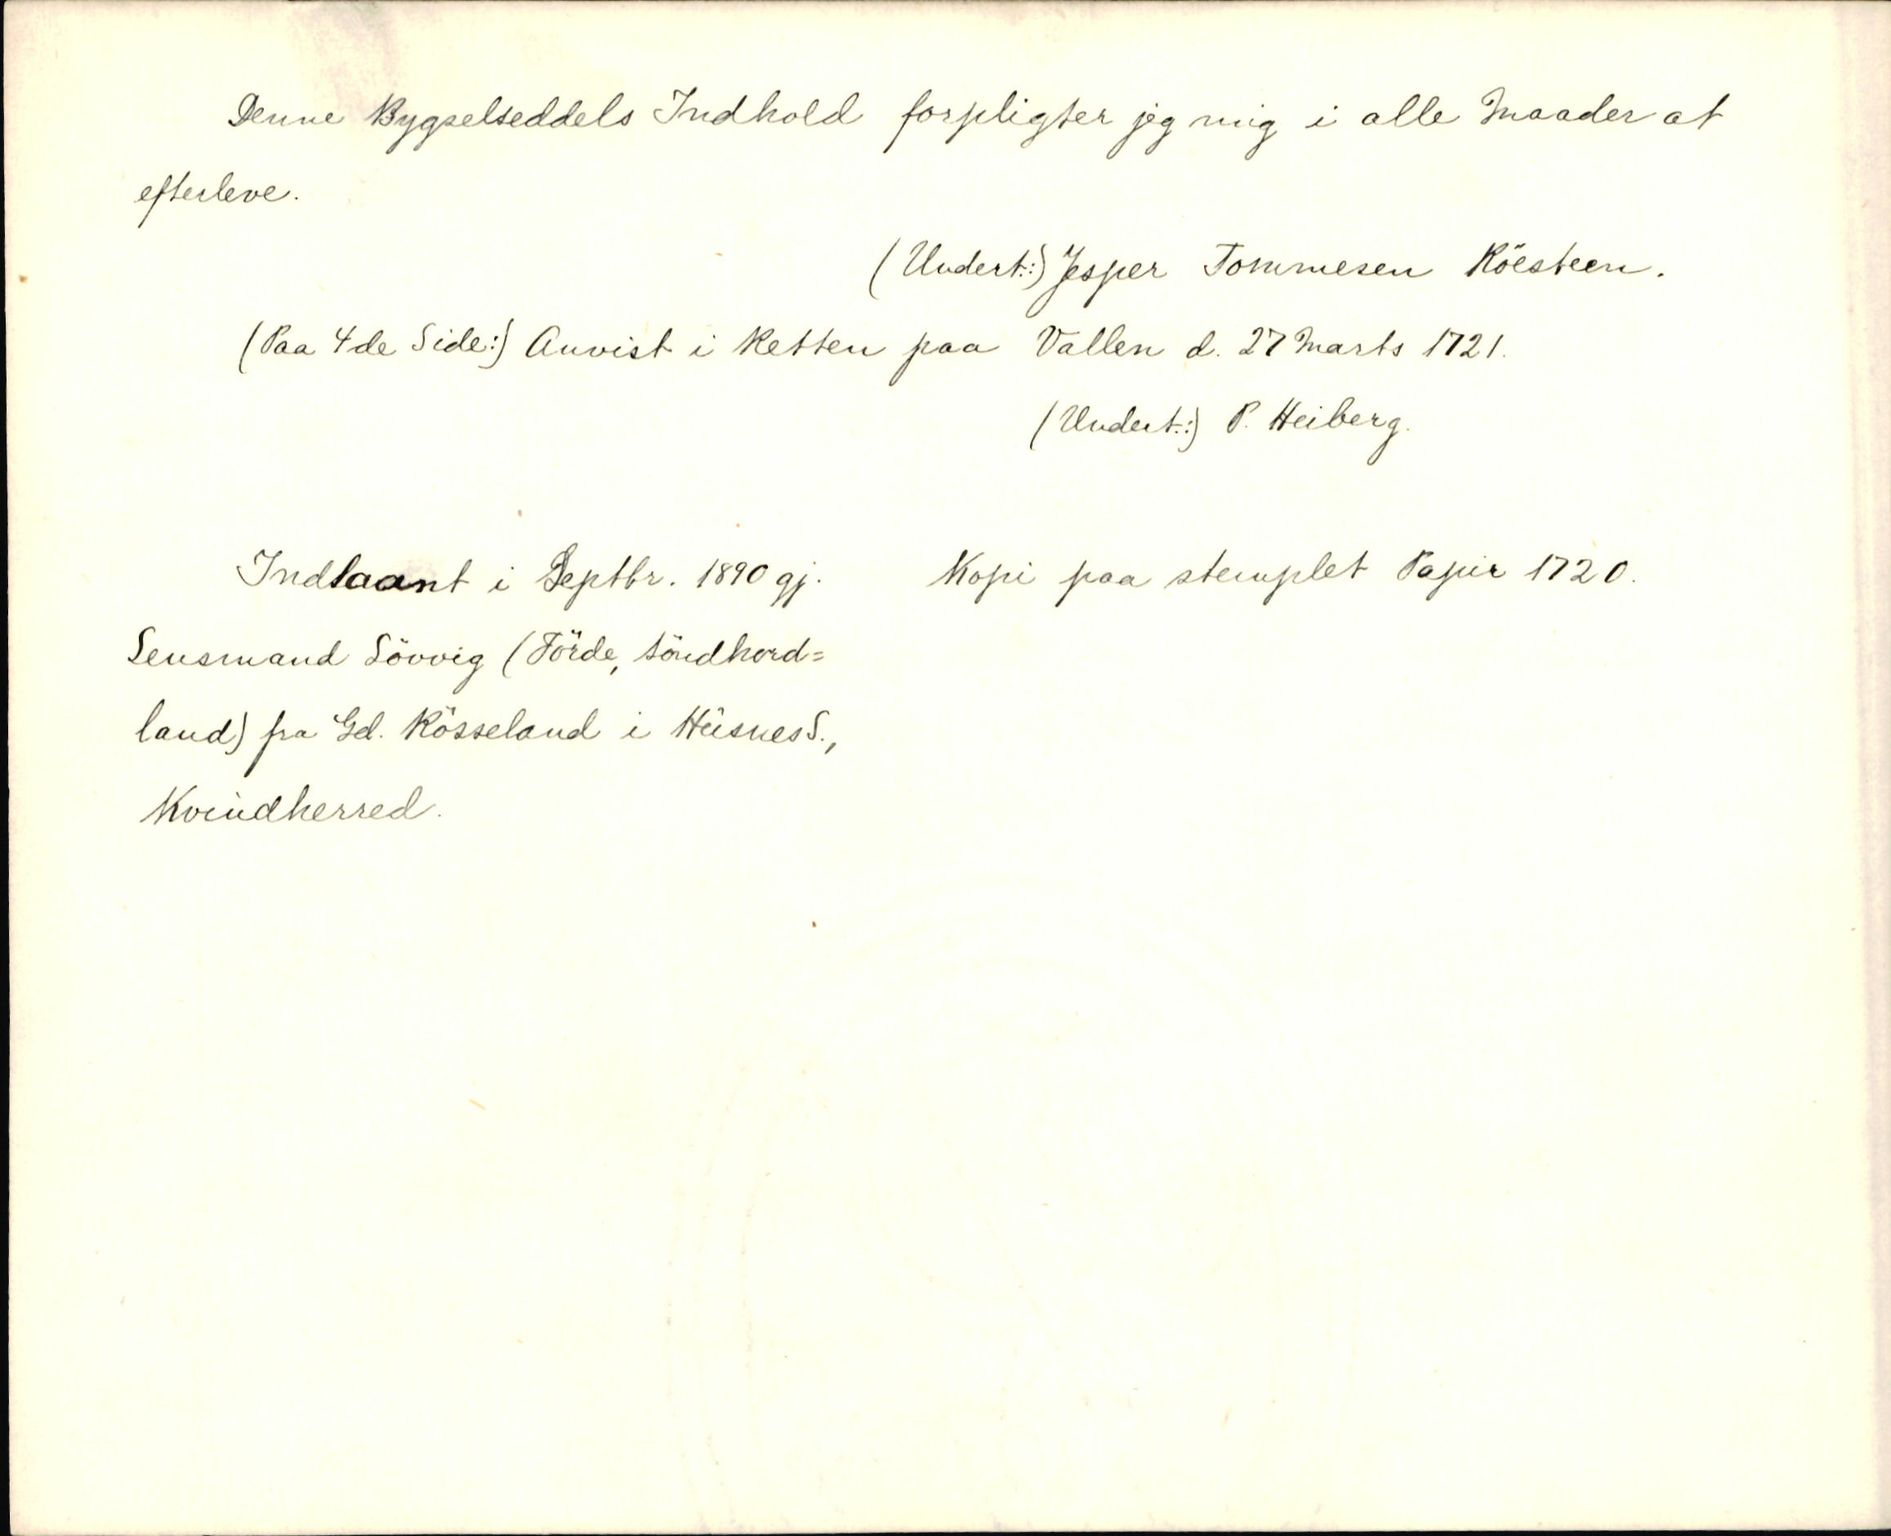 Denne Bygselseddels Indhold forpligter jeg mig i alle Maader at
efterleve.
(Undert:) Jesper Tommesen Röesteen.
(Paa 4de Side:) Anvist i Retten paa Vallen d. 27 Marts 1721.
(Undert.:) P. Heiberg.
Indlaant i Septbr. 1890 gj.
Lensmand Lövvig (Förde, Söndhord=
land) fra Gd. Rösseland i Hüsnes S.,
Kvindherred.
Kopi paa stemplet Papir 1720.